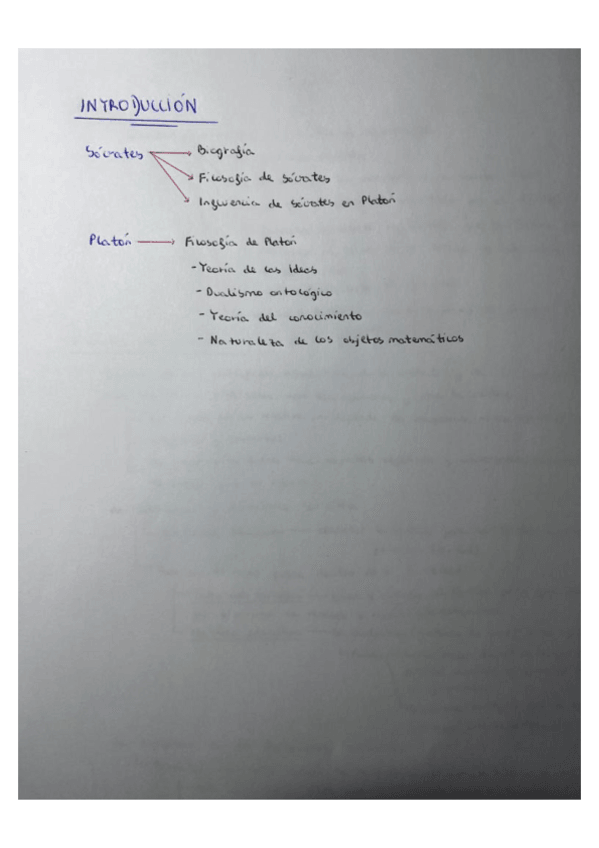 INTRODUCCIÓN
Sócrates → Biografía
→ Filosofía de Sócrates
→ Influencia de Sócrates en Platón
Platón → Filosofía de Platón
- Teoría de las Ideas
- Dualismo ontológico
- Teoría del conocimiento
- Naturaleza de los objetos matemáticos